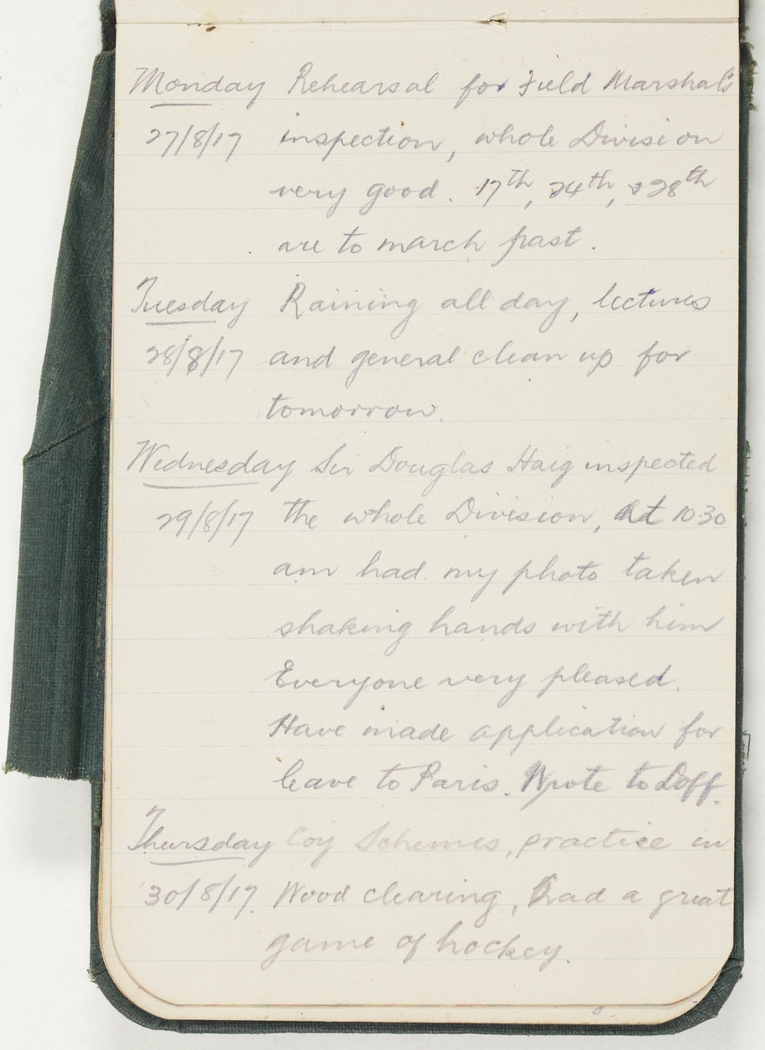 Monday Rehearsal for Field Marshal's
27/8/17 inspection, whole Division
very good. 17th, 24th, & 28th
are to march past.
Tuesday Raining all day, lectures
28/8/17 and general clean up for
tomorrow.
Wednesday Sir Douglas Haig inspected
29/8/17 the whole Division, At 1030
am had my photo taken
shaking hands with him
Everyone very pleased.
Have made application for
leave to Paris. Wrote to Doff.
Thursday Coy Schemes, practice in
30/8/17. Wood clearing, Had a great
game of hockey.